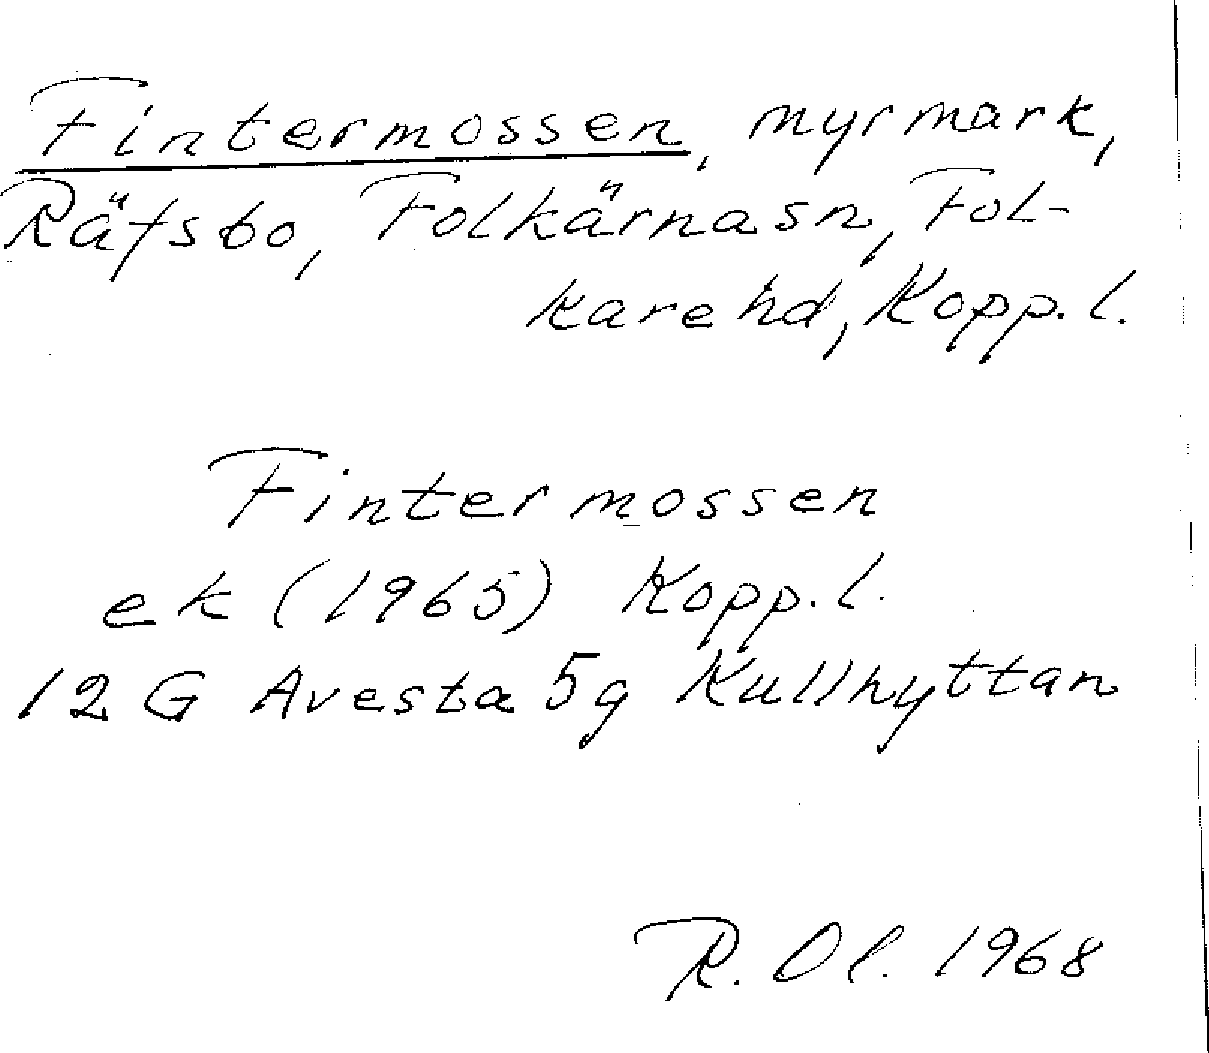 Fintermossen, myrmark,
Räfsbo, Folkärnasn, Fol-
kare hd, Kopp. l.
Fintermossen
ek (1965) Kopp. l.
12 G Avesta 5g Kullhyttan
R. Ol. 1968